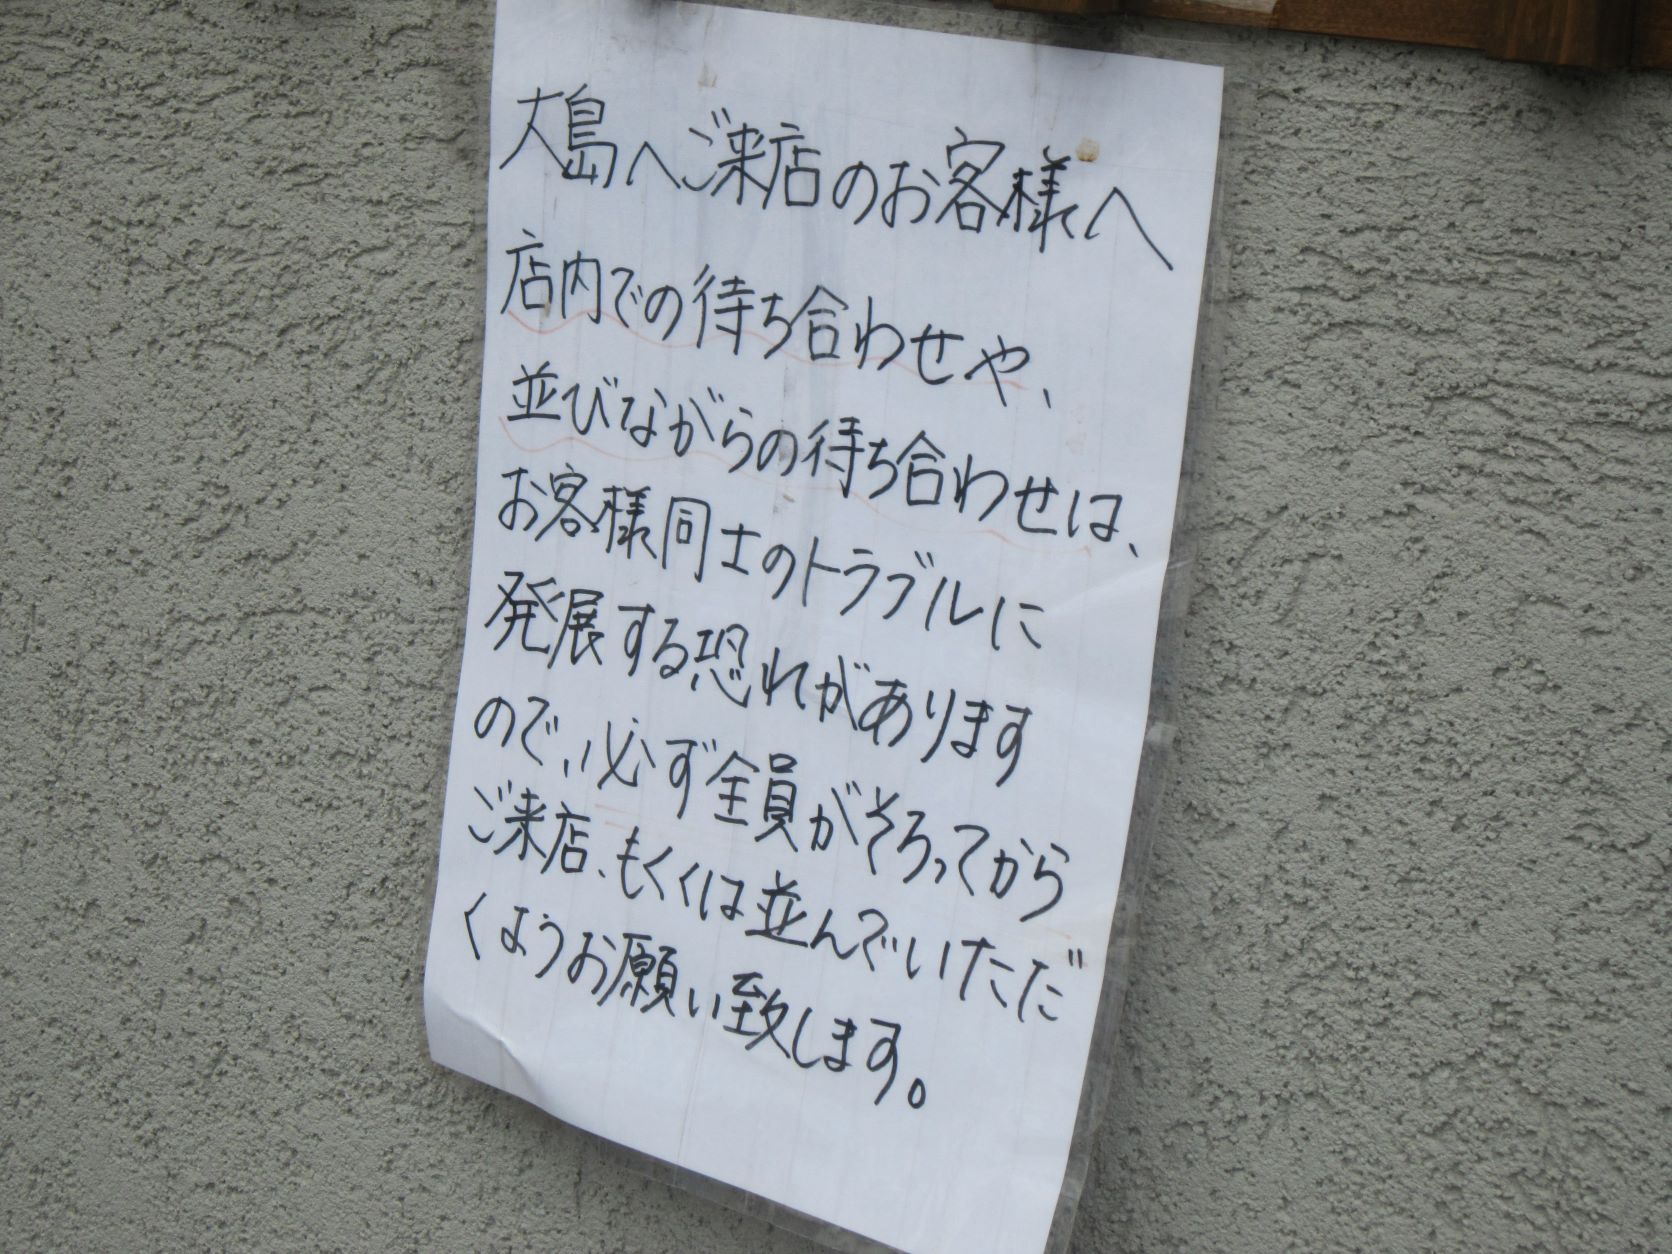 大島へご来店のお客様へ
店内での待ち合わせや、
並びながらの待ち合わせは、
お客様同士のトラブルに
発展する恐れがあります
ので、必ず全員がそろってから
ご来店、もくくは並んでいただ
くようお願い致します。